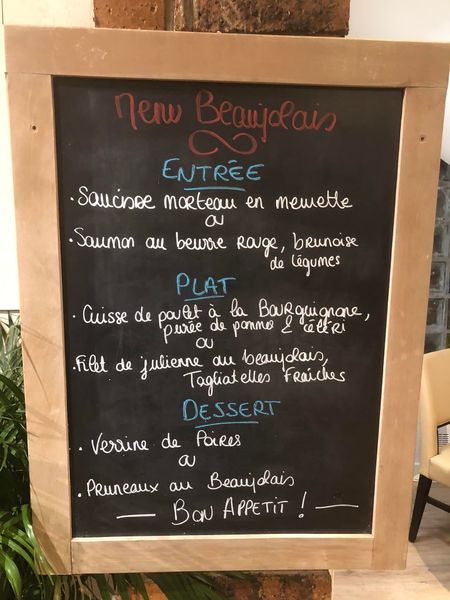 Menu Beaujolais
ENTRÉE
. Saucisse morteau en meurette
ou
. Saumon au beurre rouge, brunoise
de légumes
PLAT
. Cuisse de poulet à la Bourguignone,
purée de pommes & céleri
ou
. Filet de julienne au beaujolais,
Tagliatelles Fraîches
DESSERT
. Verrine de Poires
ou
. Pruneaux au Beaujolais
— BON APPETIT ! —